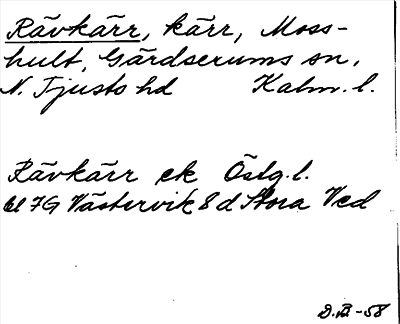 Rävkärr, kärr, Moss-
hult, Gärdserums sn,
N. Tjusts hd Kalm. l.
Rävkärr ek Östg. l.
bl 7G Västervik 8 d Stora Ved
D. -58